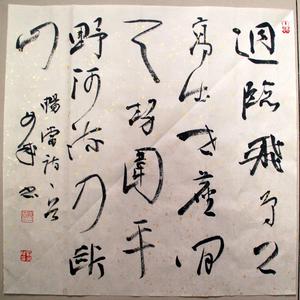 迥臨飛鳥上
高出世塵間
天勢圍平
野河流入斷
山
暢當詩
書